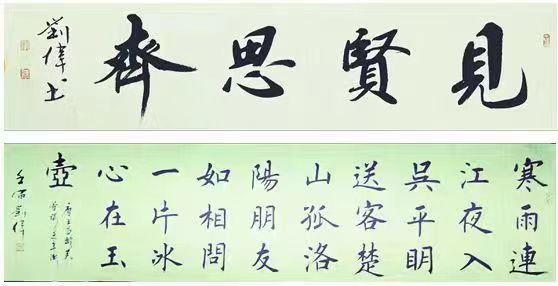 見賢思齊
劉偉
寒雨連
江夜入
吳平明
送客楚
山孤洛
陽朋友
如相問
一片冰
心在玉
壺
唐王昌齡芙
蓉樓送辛漸
劉偉